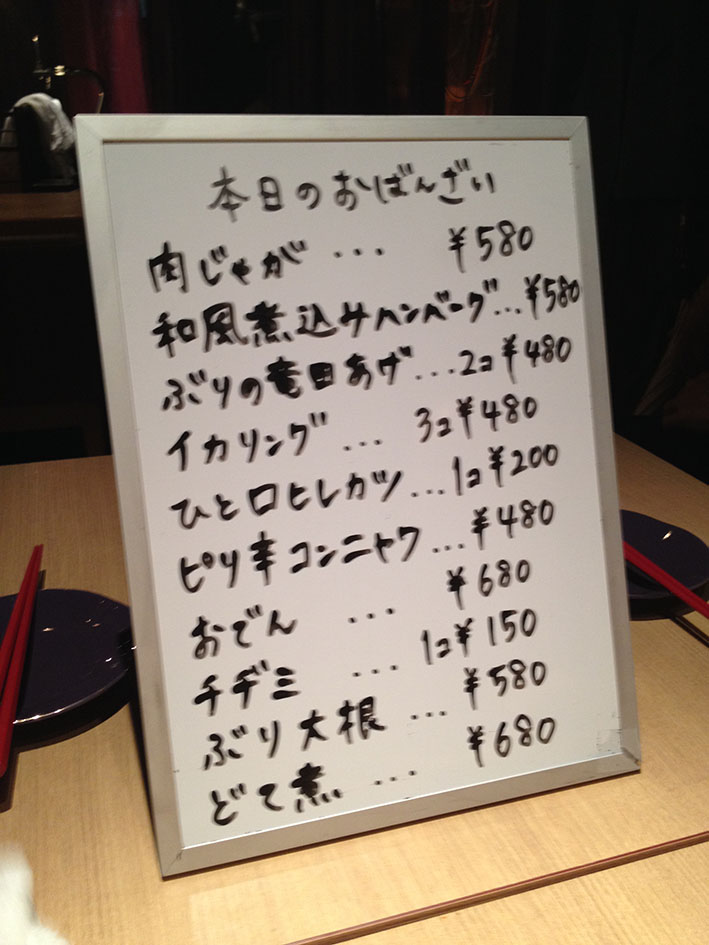 本日のおばんざい
肉じゃが … ¥580
和風煮込みハンバーグ…¥580
ぶりの竜田あげ…2コ¥480
イカリング … 3コ¥480
ひと口ヒレカツ…1コ¥200
ピリ辛コンニャク…¥480
おでん … ¥680
チヂミ … 1コ¥150
ぶり大根 … ¥580
どて煮 … ¥680